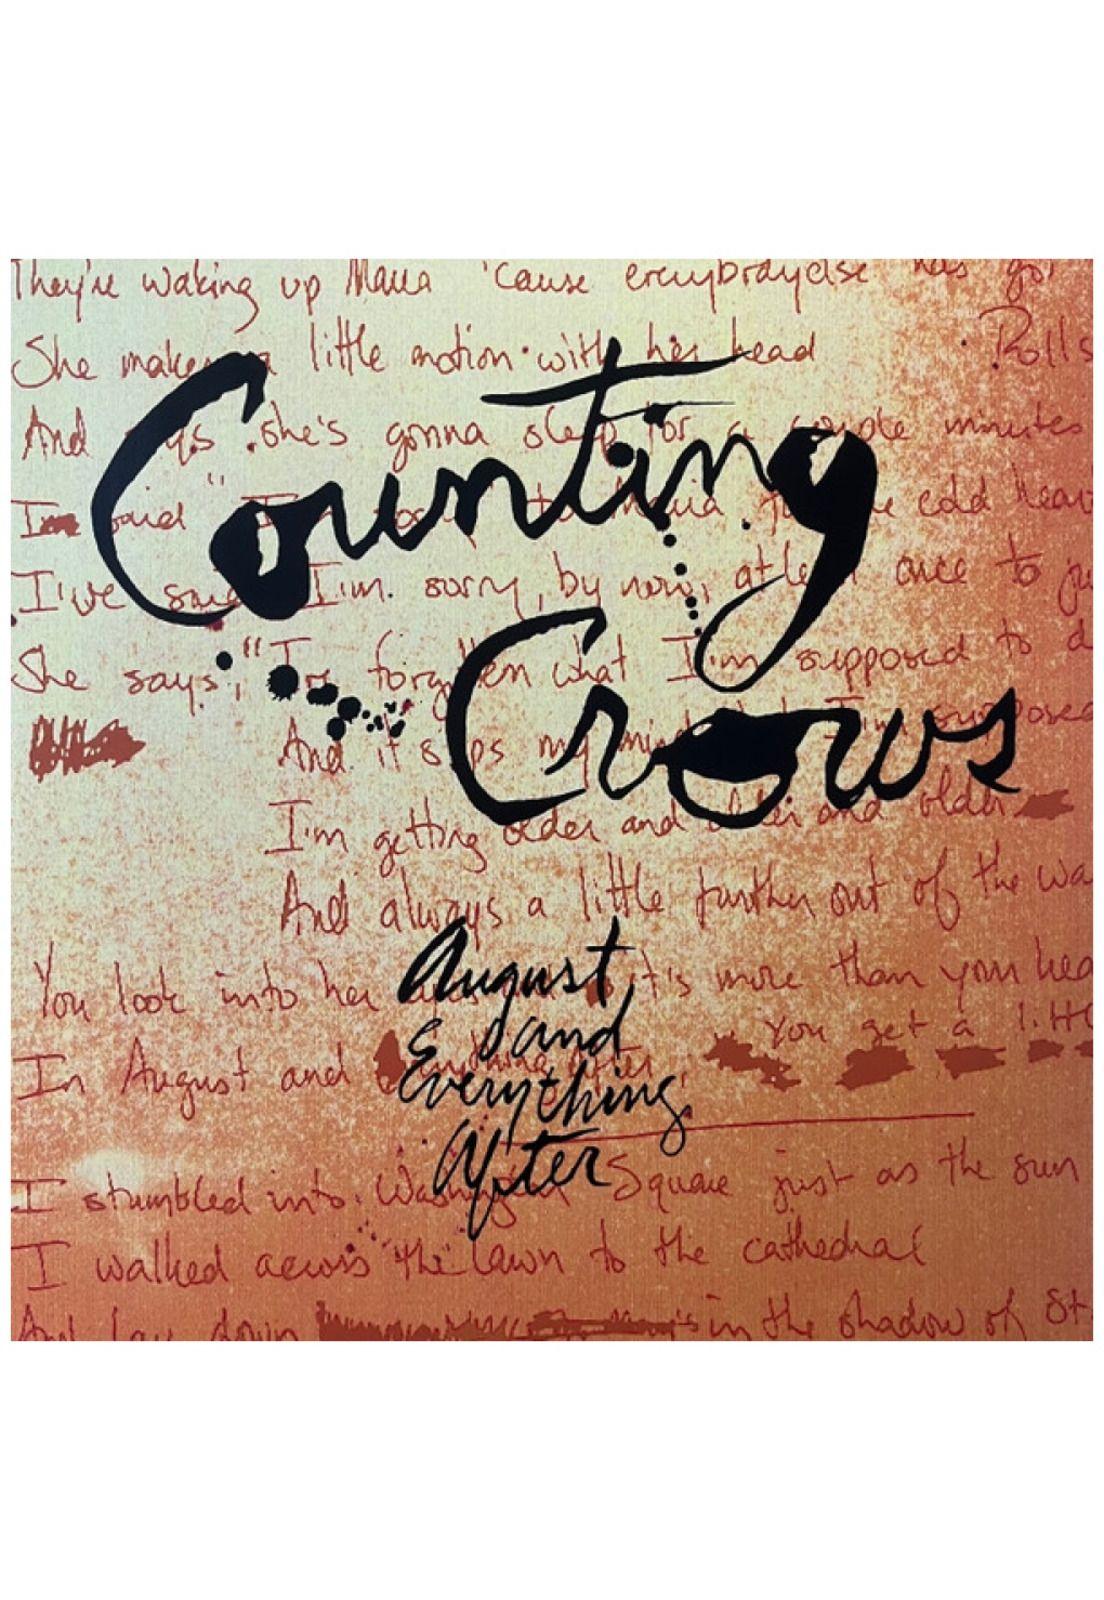 They're waking up Maria 'cause everybodyelse has got
She makes a little motion with her head Rolls
And says she's gonna sleep for a couple minutes
Counting
I'm said " to Maria for the cold
I've said I'm sorry, by now, at least once to ju
Crows
She says, "I've forgotten what I'm supposed to d
And it slips my mind what I'm supposed
I'm getting older and older and older
And always a little further out of the wa
August
You look into her it's more than your hea
and
In August and Everything After, You get a littl
Everything
After
I stumbled into Washington Square just as the sun
I walked across the lawn to the cathedral
And lay down in the shadow of St.